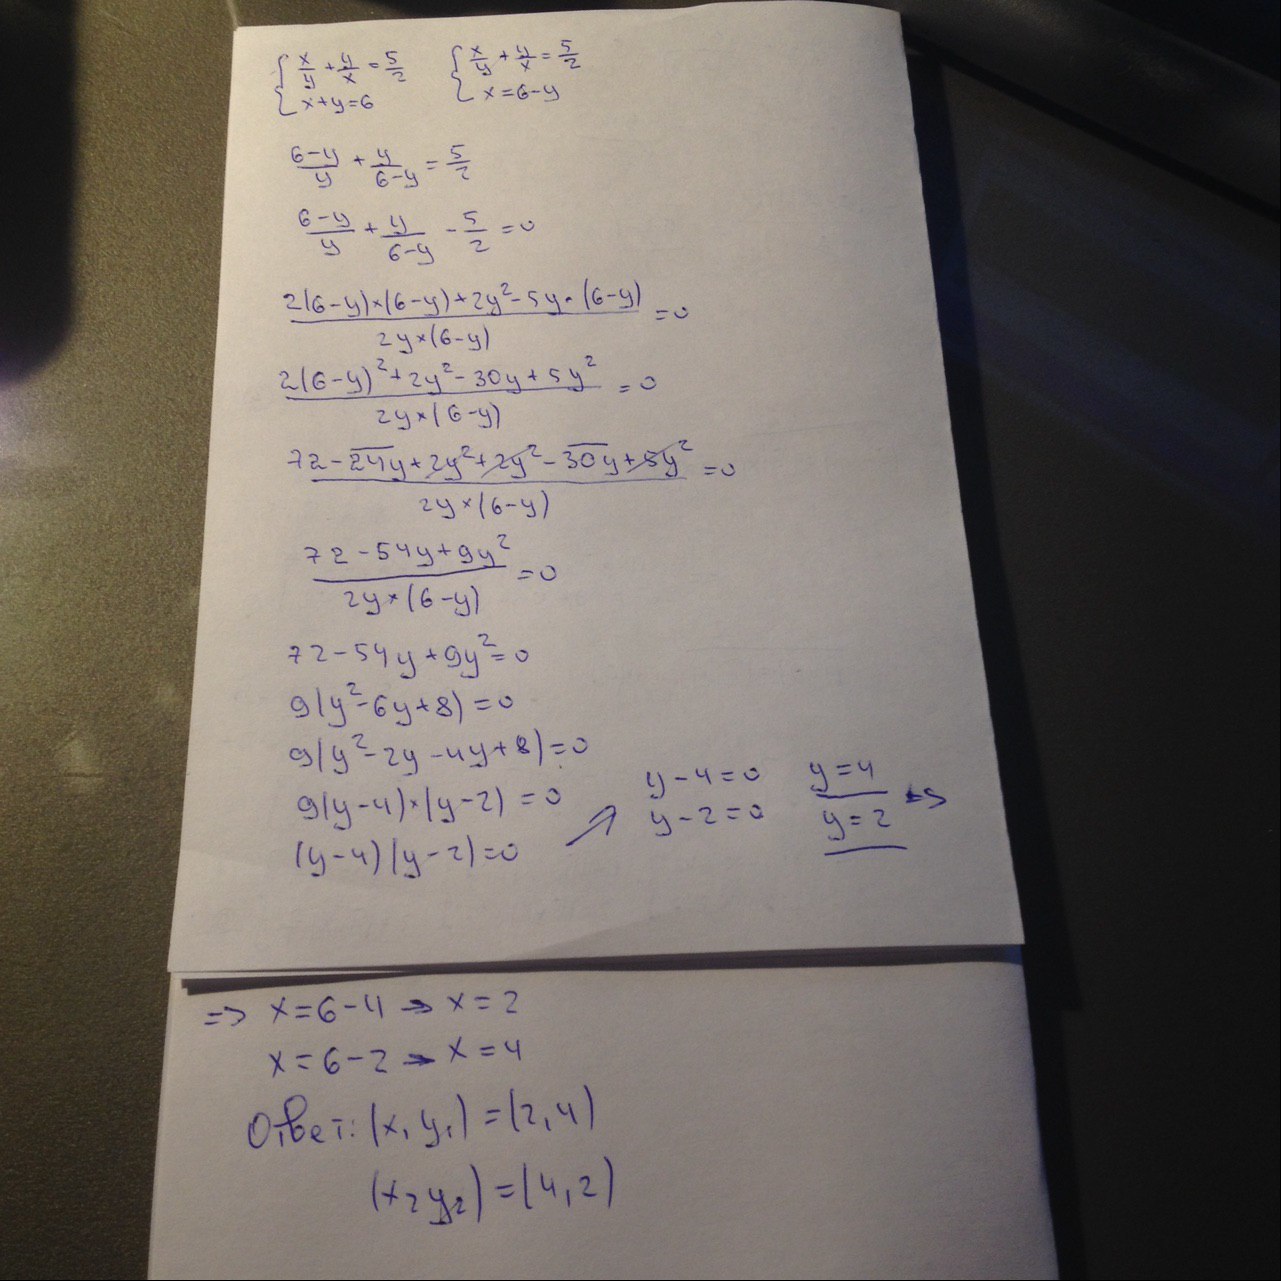 { x/y + y/x = 5/2 { x/y + y/x = 5/2
x+y=6 x=6-y
(6-y)/y + y/(6-y) = 5/2
(6-y)/y + y/(6-y) - 5/2 = 0
(2(6-y)×(6-y)+2y²-5y·(6-y))/(2y×(6-y)) = 0
(2(6-y)²+2y²-30y+5y²)/(2y×(6-y)) = 0
(72-24y+2y²+2y²-30y+5y²)/(2y×(6-y)) = 0
(72-54y+9y²)/(2y×(6-y)) = 0
72-54y+9y²=0
9(y²-6y+8)=0
9(y²-2y-4y+8)=0
9(y-4)×(y-2)=0
(y-4)(y-2)=0 ↗
y-4=0 y=4
y-2=0 y=2 =>
=> x=6-4 → x=2
x=6-2 → x=4
Ответ: (x₁ y₁) = (2,4)
(x₂ y₂) = (4,2)